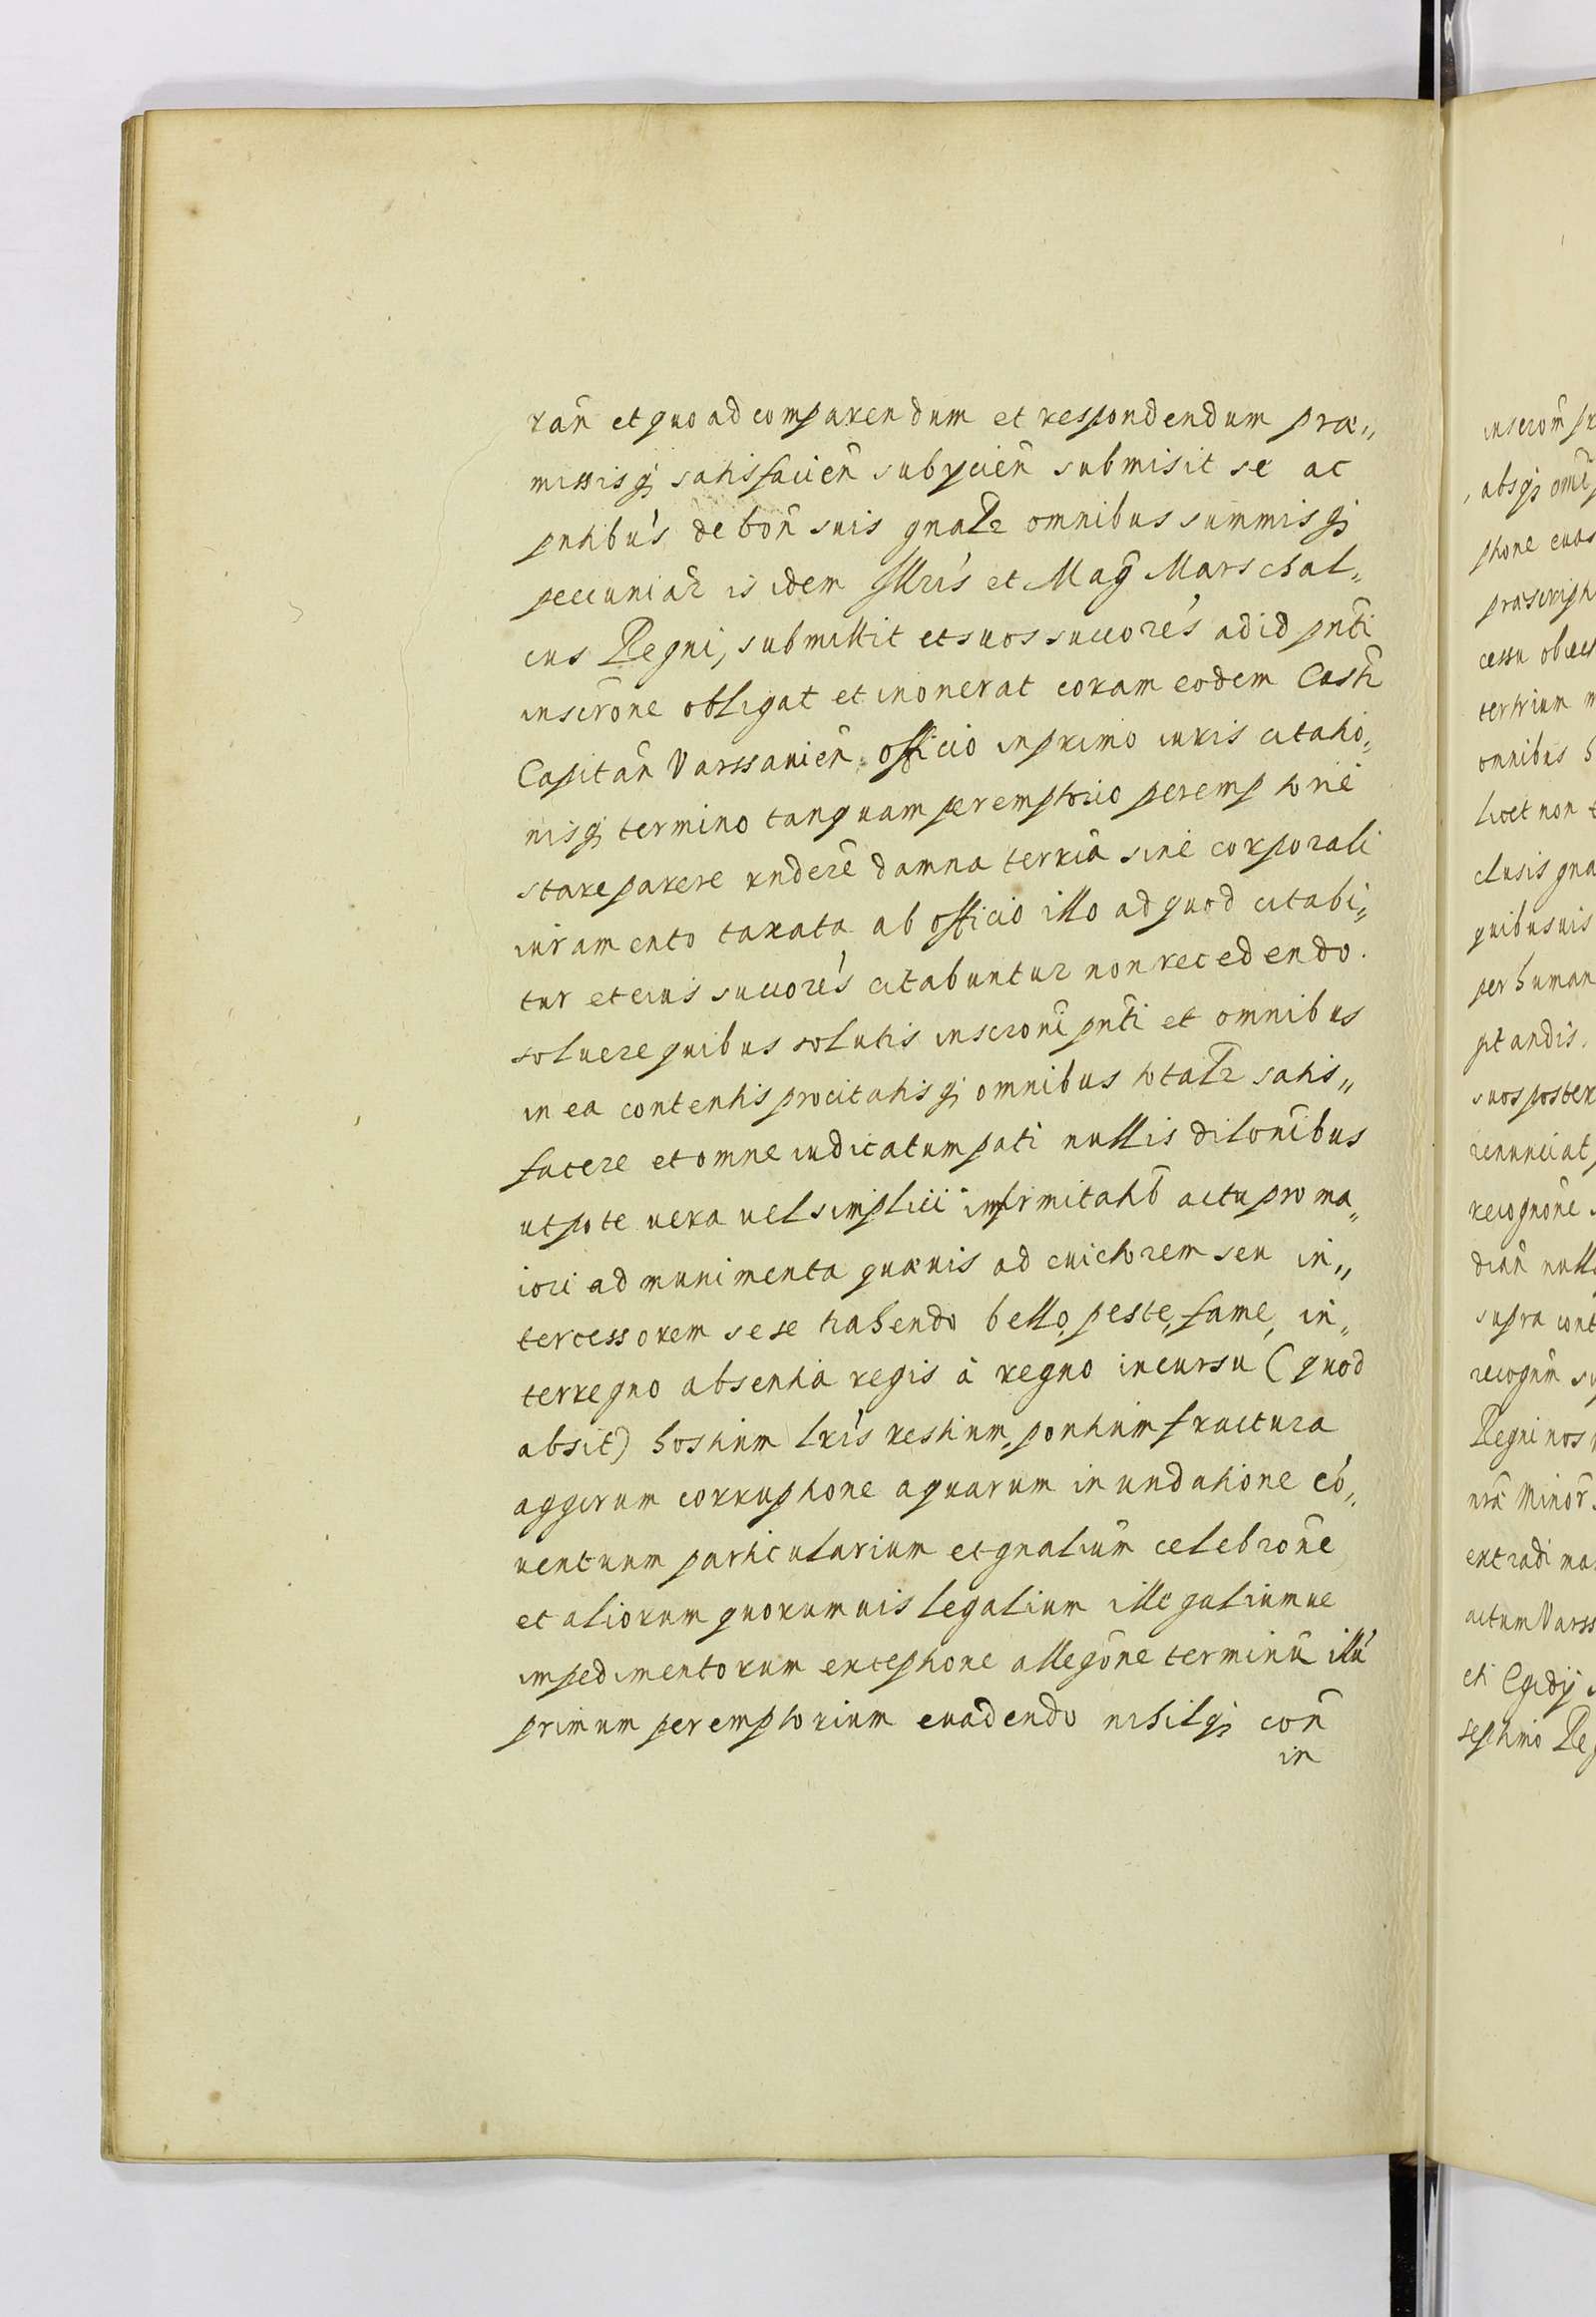 rañ et quo ad comparendum et respondendum præ„
missisq; satisfacień subijcień submisit se ac
pntibus de boñ suis gnalr omnibus summisq;
pecuniar is idem Illris et Mag Marschal„
cus Regni, submittit et suos succores ad id pnti
inscrone obligat et inonerat coram eodem Castri
Capitań Varssavień officio in primo iuris citatio„
nisq; termino tanquam peremptorio peremptorie
stare parere rndere damna terria sine corporali
iuramento taxata ab officio illo ad quod citabi„
tur et eius succores citabuntur non recedendo.
soluere quibus solutis inscroni pnti et omnibus
in ea contentis procitatisq; omnibus totalr satis„
facere et omne iudicatum pati nullis dilonibus
utpote uera uel simplici infirmitate actu pro ma„
iori ad munimenta quæuis ad euictorem seu in„
tercessorem sese trahendo bello, peste, fame, in„
terregno absentia regis à regno incursu (quod
absit) hostium lris restium, pontium fractura
aggerum corruptione aquarum inundatione co„
uentuum particularium et gnalium celebrone
et aliorum quorumuis legalium illegaliumue
impedimentorum exceptione allegone terminū illū
primum peremptorium euadendo nihilq; coñ
in
inscrom pr
absq; omi
ptione euas
præscript
cessu obiect
tertium m
omnibus
licet non
clusis gna
quibusuis
per human
gitandis.
suos poster
renunciat
recognone
diań null
supra cont
recognm su
Regni nos
nra Minor
extradi ma
actum Varss
cti Egidij
septimo Reg